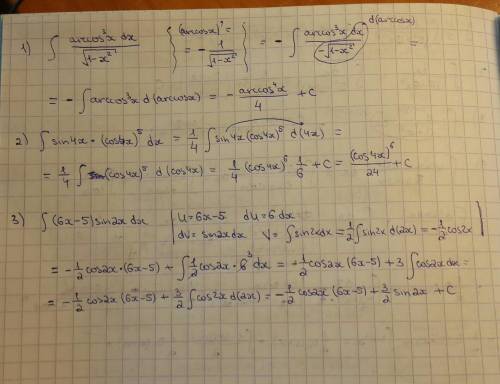 1) ∫ arccos³x dx / √(1-x²) { (arccosx)' = = - 1/√(1-x²) } = - ∫ arccos³x dx / -√(1-x²) d(arccosx) =
= - ∫ arccos³x d(arccosx) = - arccos⁴x / 4 + C
2) ∫ sin4x · (cos4x)⁵ dx = 1/4 ∫ sin4x (cos4x)⁵ d(4x) =
= 1/4 ∫ (cos4x)⁵ d(cos4x) = 1/4 (cos4x)⁶ 1/6 + C = (cos4x)⁶ / 24 + C
3) ∫ (6x-5) sin2x dx | U = 6x-5 dU = 6 dx
dV = sin2x dx V = ∫ sin2x dx = 1/2 ∫ sin2x d(2x) = -1/2 cos2x |
= -1/2 cos2x · (6x-5) + ∫ 1/2 cos2x · 6³ dx = -1/2 cos2x (6x-5) + 3 ∫ cos2x dx =
= -1/2 cos2x (6x-5) + 3/2 ∫ cos2x d(2x) = -1/2 cos2x (6x-5) + 3/2 sin2x + C